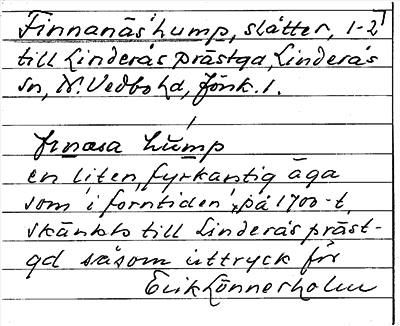 Finnanäs hump, slåtter, 1-2
till Linderås prästgd, Linderås
sn, N. Vedbo hd, Jönk. l.
hump
en liten, fyrkantig äga
som i forntiden, på 1700-t,
skänkts till Linderås präst-
gd såsom uttryck för
Erik Lönnerholm